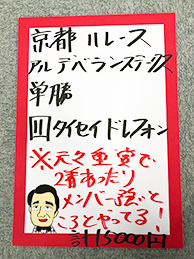 京都11レース
アルデバランステークス
単勝
11タイセイドレフォン
※元々重賞で
2着あったり
メンバー強いと
ころとやってる!
計15000円